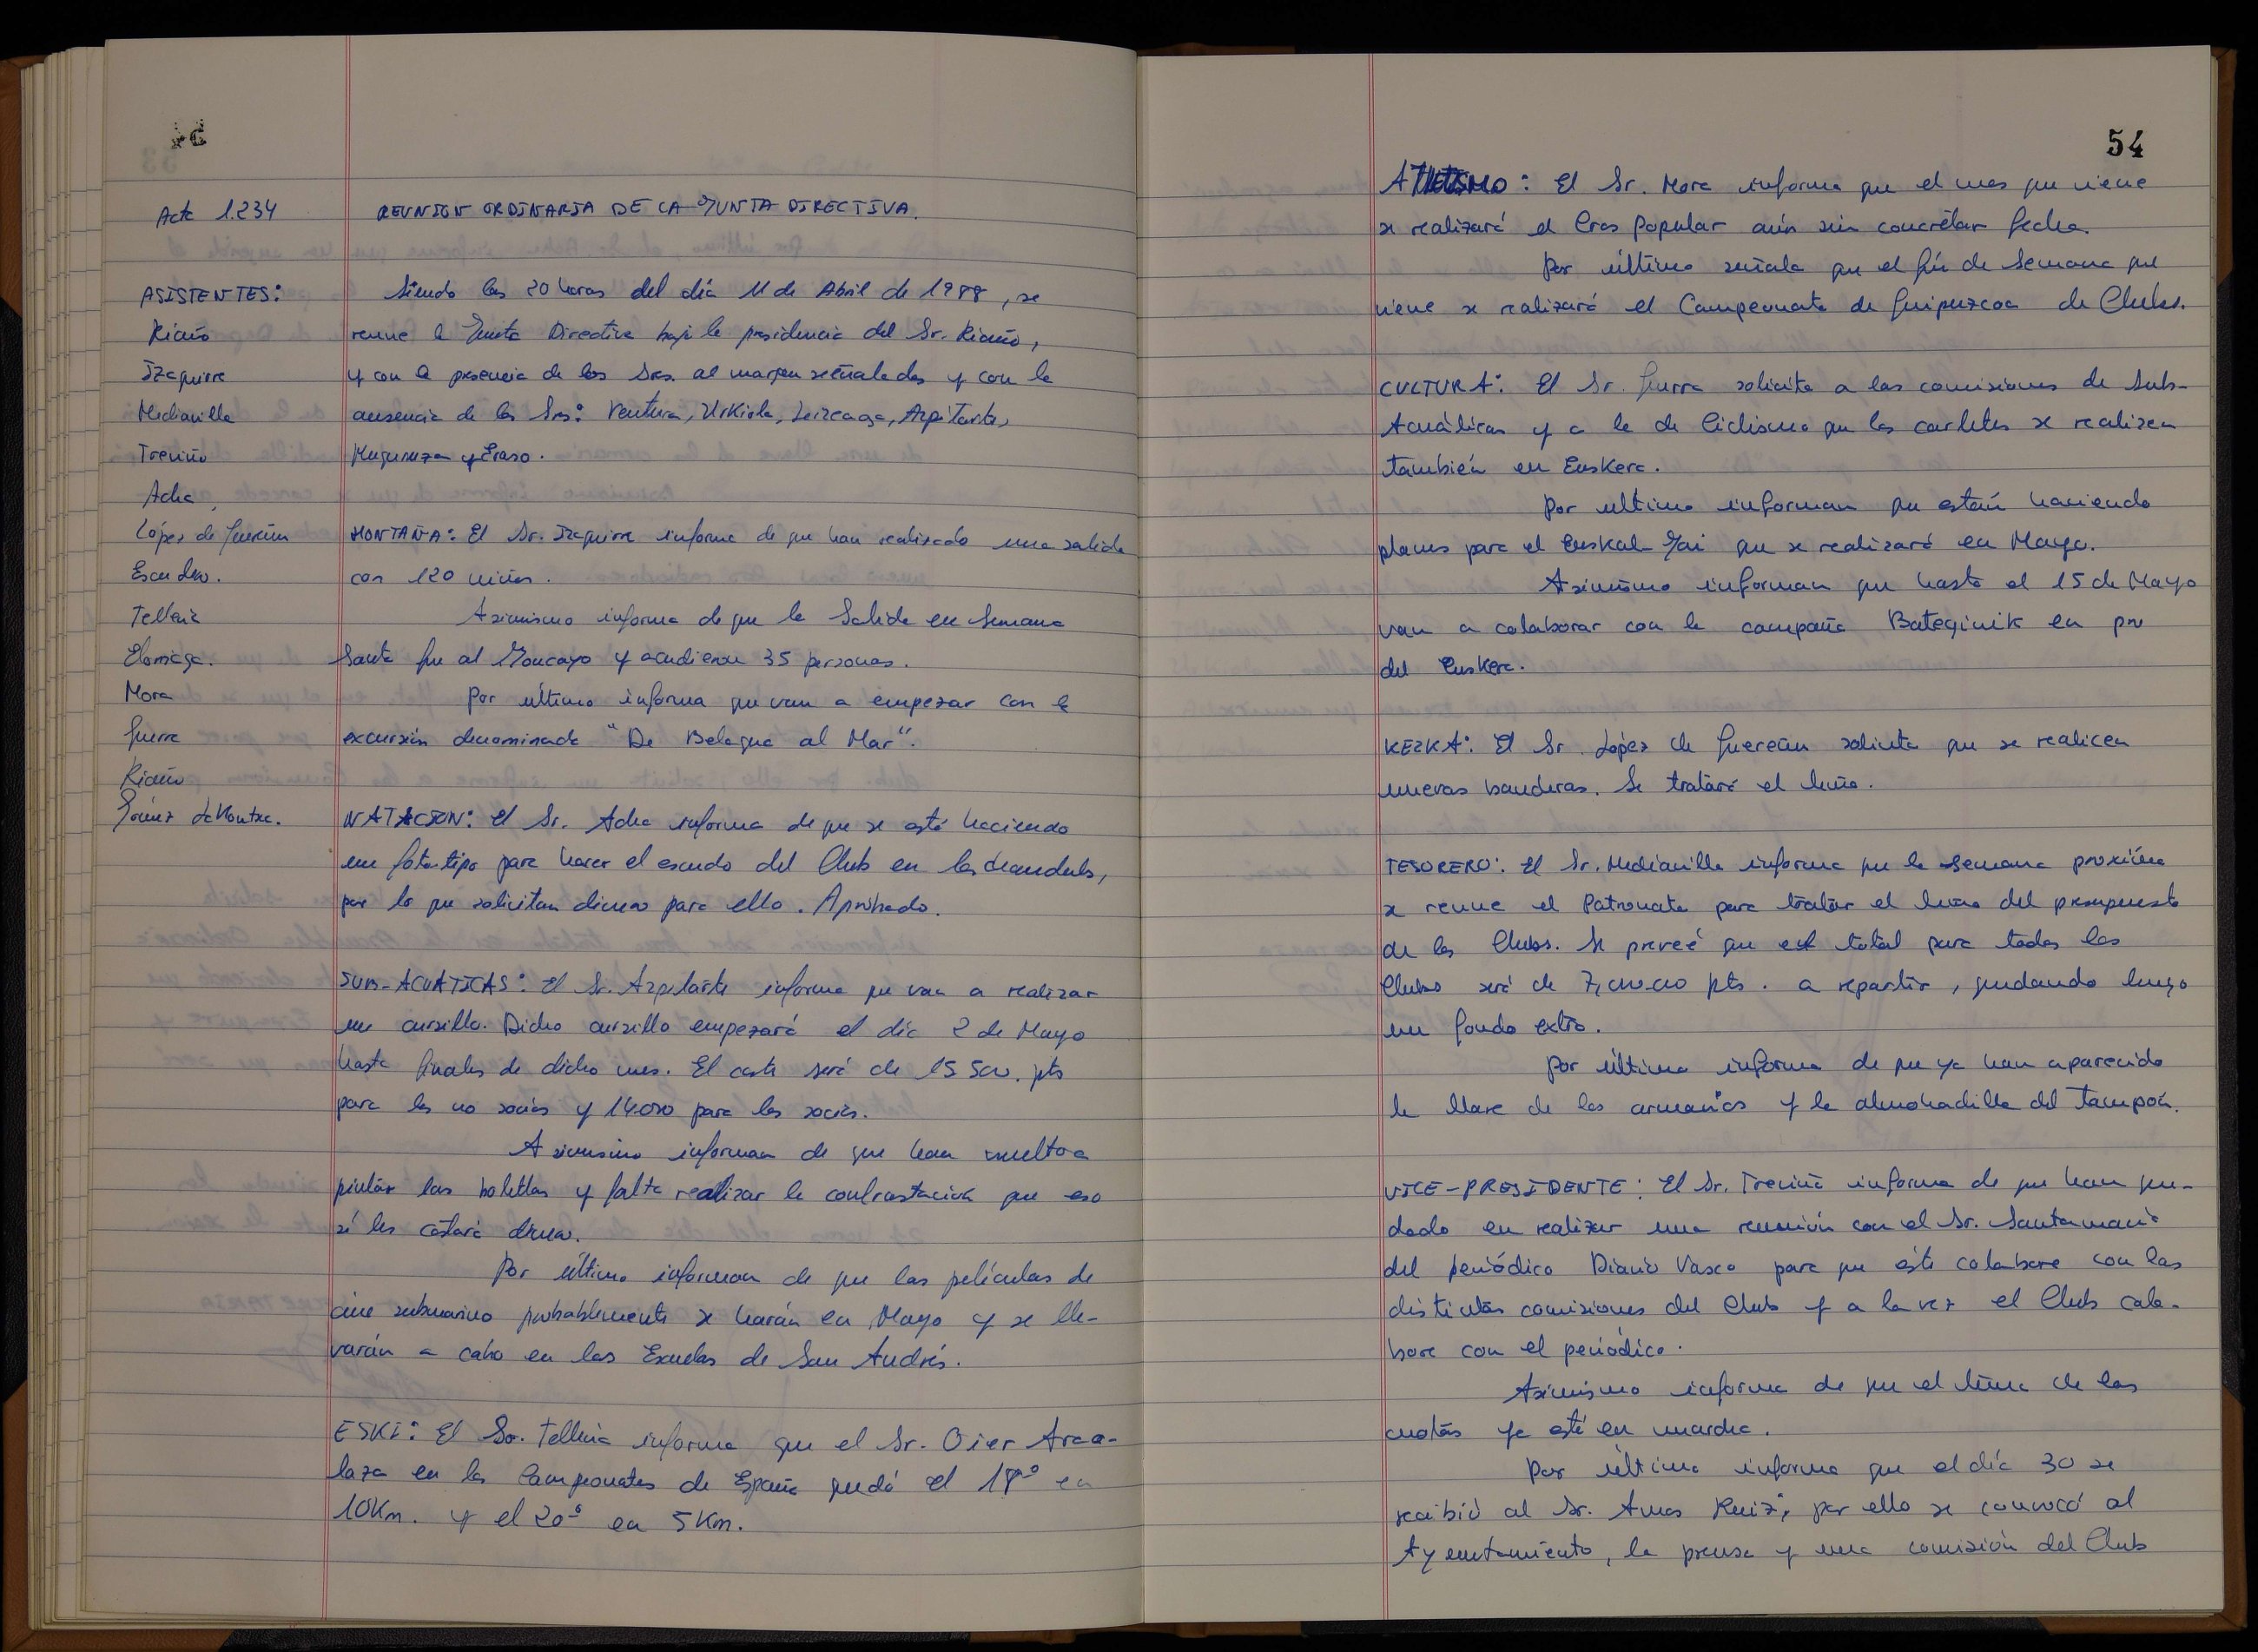 Acta 1.234
REUNION ORDINARIA DE LA JUNTA DIRECTIVA.
ASISTENTES:
Riaño
Izaguirre
Medianilla
Treviño
Acha
López de Guereñu
Escudero.
Telleria
Elorriaga.
Mora
Guerra
Riaño
Gómez de Kontxa.
Siendo las 20 horas del día 11 de Abril de 1988, se
reune la Junta Directiva bajo la presidencia del Sr. Riaño,
y con la presencia de los Srs. al margen señalados y con la
ausencia de los Srs: Ventura, Urkiola, Leizeaga, Azpitarte,
Muguruza y Eraso.
MONTAÑA: El Sr. Izaguirre informa de que han realizado una salida
con 120 niños.
Asimismo informa de que la Salida en Semana
Santa fue al Moncayo y acudieron 35 personas.
Por último informa que van a empezar con la
excursión denominada "De Belagua al Mar".
NATACION: El Sr. Acha informa de que se está haciendo
un fotolipo para hacer el escudo del Club en los
por lo que solicitan dinero para ello. Aprobado.
SUB-ACUATICAS: El Sr. Azpitarte informa que van a realizar
un cursillo. Dicho cursillo empezará el día 2 de Mayo
hasta finales de dicho mes. El coste será de 15.500. pts
para los no socios y 14.000 para los socios.
Asimismo informan de que han vuelto a
pintar las botellas y falta realizar la contrastación que eso
sí les costará dinero.
Por último informan de que las películas de
cine submarino probablemente se harán en Mayo y se lle-
varán a cabo en las Escuelas de San Andrés.
ESKI: El Sr. Telleria informa que el Sr. Oier Arao-
laza en los Campeonatos de España quedó el 18º en
10Km. y el 20º en 5Km.
54
ATLETISMO: El Sr. Mora informa que el mes que viene
se realizará el Cros Popular aún sin concretar fecha.
Por último señala que el fin de Semana que
viene se realizará el Campeonato de Guipuzcoa de Clubs.
CULTURA: El Sr. Guerra solicita a las comisiones de Sub-
Acuáticas y a la de Ciclismo que los carteles se realicen
también en Euskera.
Por ultimo informan que están haciendo
planes para el Euskal-Jai que se realizará en Mayo.
Asimismo informan que hasta el 15 de Mayo
van a colaborar con la campaña Bateginik en pro
del Euskera.
KEZKA: El Sr. López de Guereñu solicita que se realicen
nuevas banderas. Se tratará el tema.
TESORERO: El Sr. Medianilla informa que la semana próxima
se reune el Patronato para tratar el tema del presupuesto
de los Clubs. Se preveé que el total para todos los
Clubs será de 7,000.000 pts. a repartir, quedando luego
un fondo extra.
Por último informa de que ya han aparecido
la llave de los armarios y la almohadilla del tampón.
VICE-PRESIDENTE: El Sr. Treviño informa de que han que-
dado en realizar una reunión con el Sr. Santamaría
del periódico Diario Vasco para que éste colabore con las
distintas comisiones del Club y a la vez el Club cola-
bore con el periódico.
Asimismo informa de que el tema de las
cuotas ya está en marcha.
Por último informa que el día 30 se
recibió al Sr. Amos Ruiz, por ello se convocó al
Ayuntamiento, la prensa y una comisión del Club